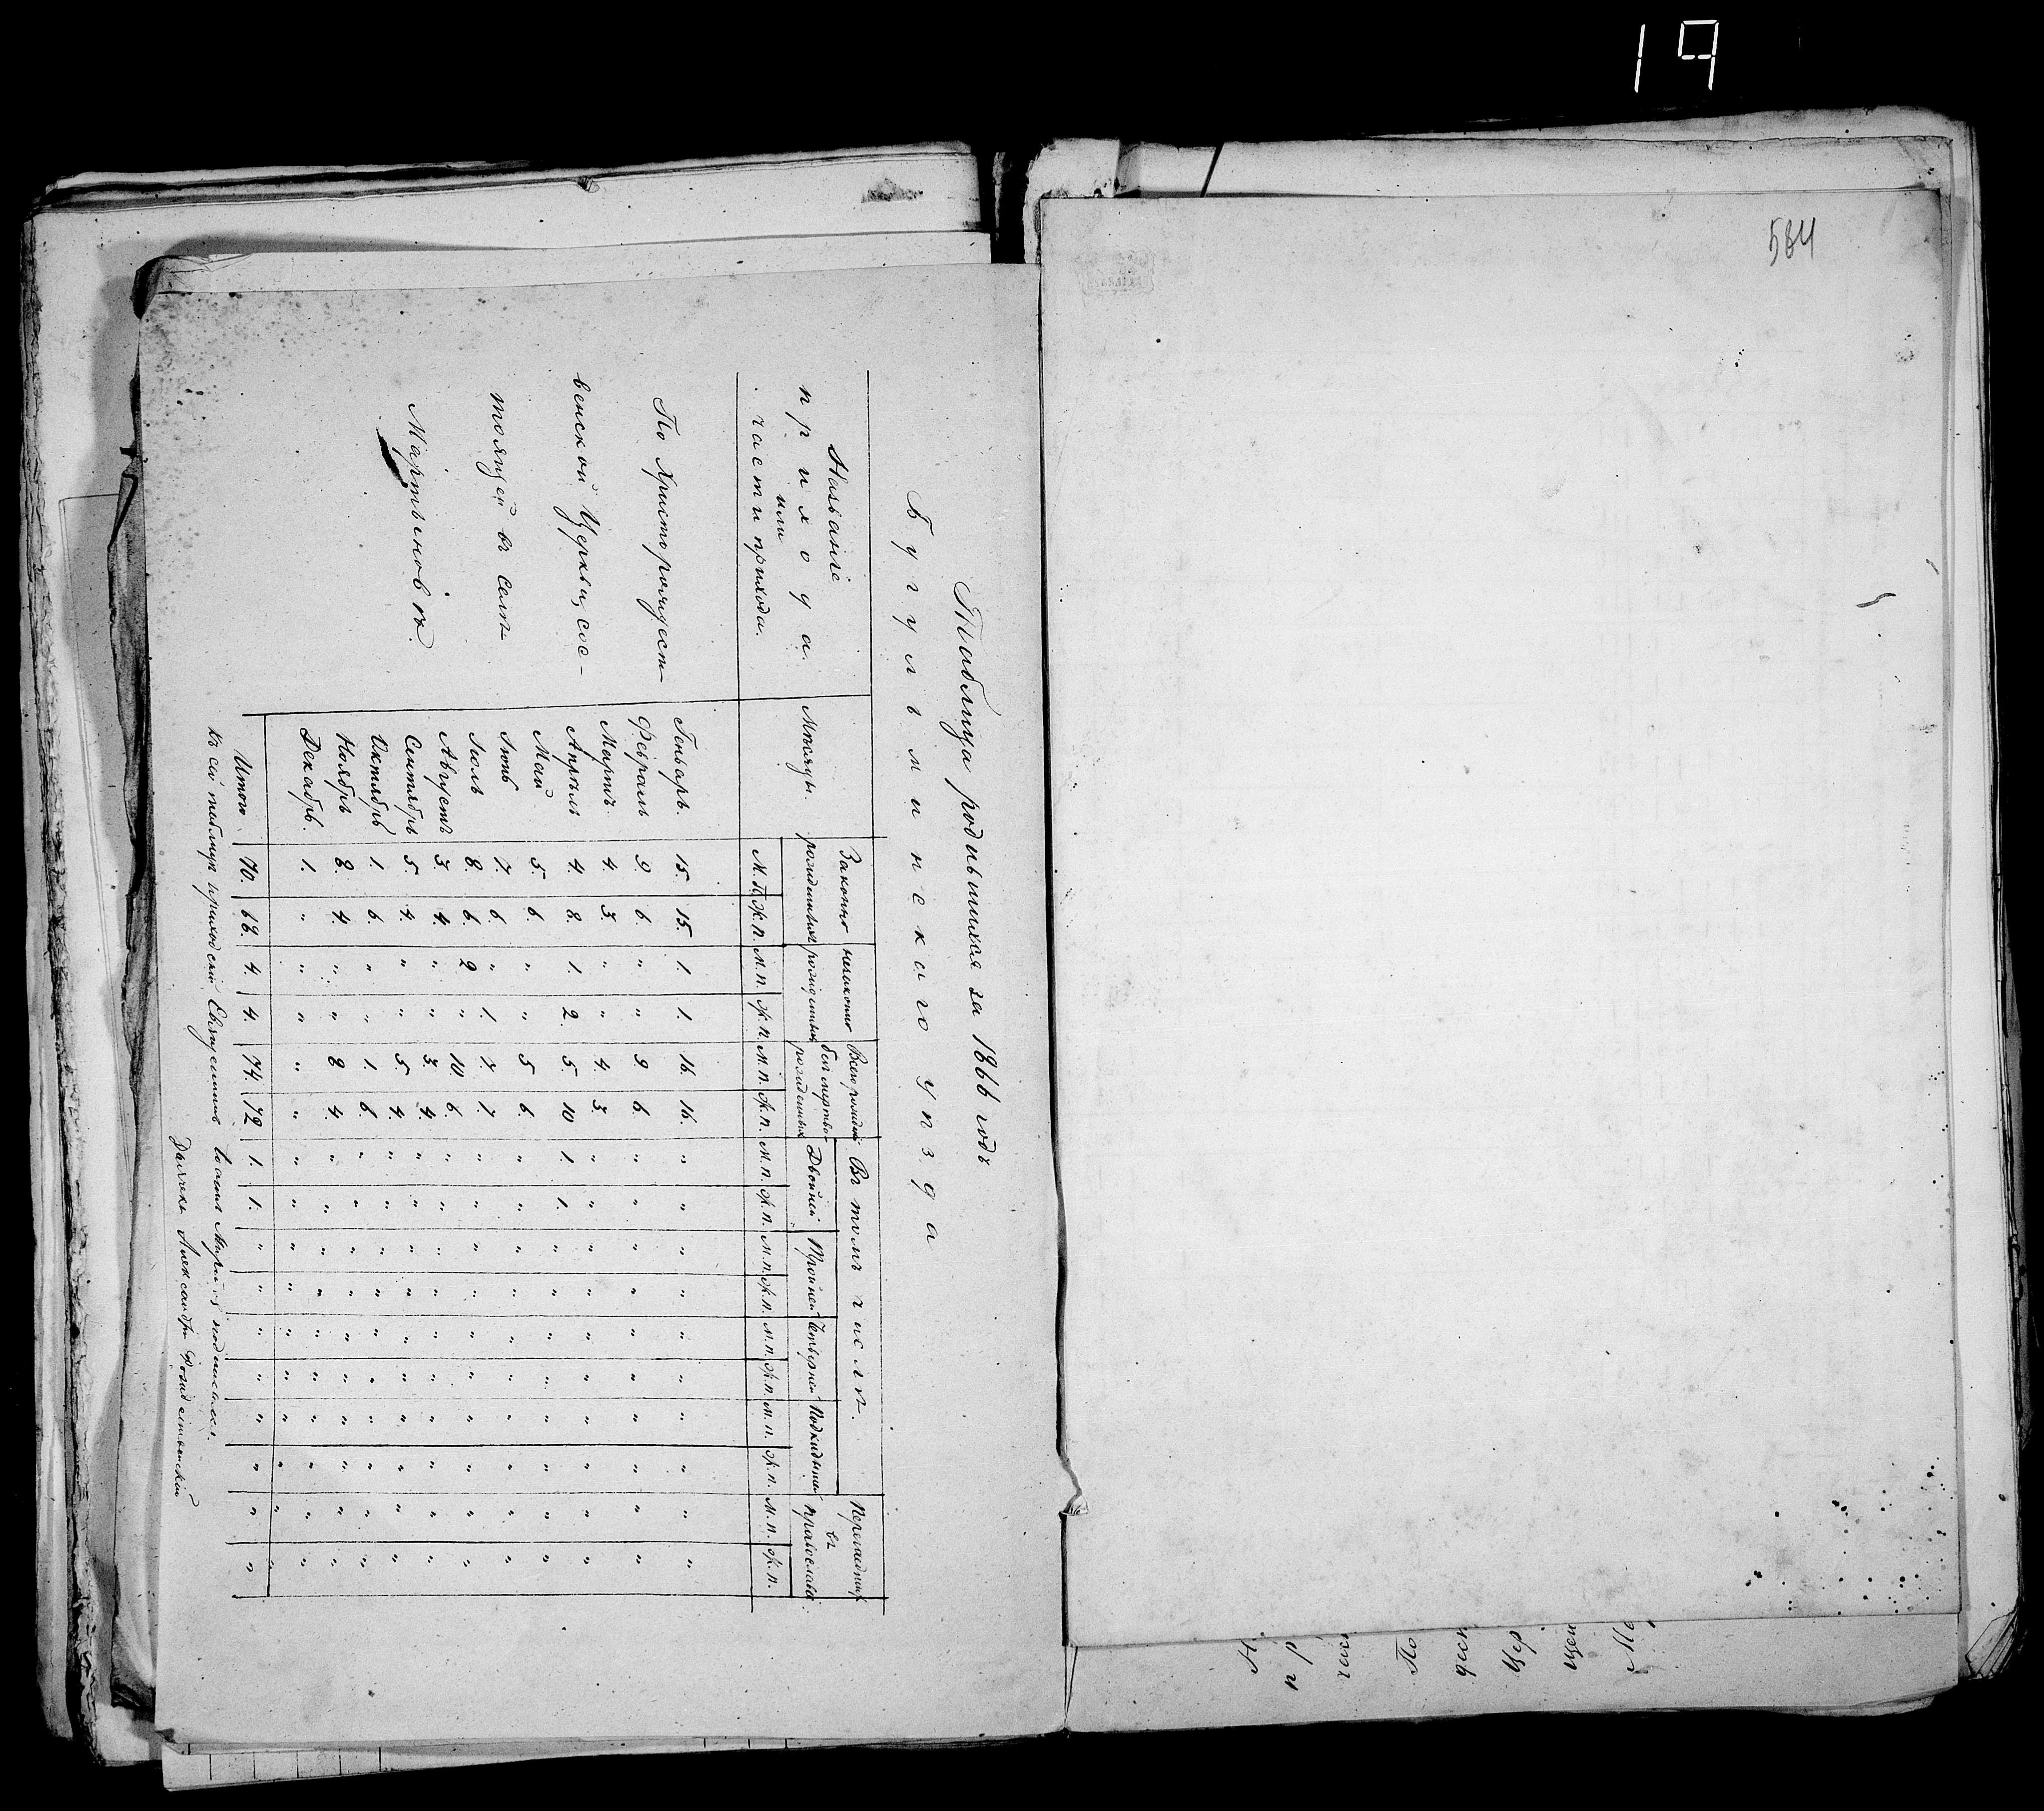 19
584
Таблица родившихся за 1866 годъ
Бугульминскаго уѣзда
Названіе прихода или части прихода.
Мѣсяцы.
Законно рожденныхъ
незаконно рожденныхъ
Всего рожден. безъ мертворожденныхъ
Въ томъ числѣ.
Двойней
Тройней
Четверней
Подкидыши
Перешедших въ православіе.
М.П. Ж.П. М.П. Ж.П. М.П. Ж.П. М.П. Ж.П. М.П. Ж.П. М.П. Ж.П. М.П. Ж.П. М.П. Ж.П.
По Христорождест-
венской Церкви, сос-
тоящей въ селѣ
Мартыновкѣ.
Генварь. 15. 15. 1. 1. 16. 16. " " " " " " " " " "
Февраль 9. 6. " " 9 6. " " " " " " " " " "
Мартъ. 4. 3. " " 4. 3. " " " " " " " " " "
Апрѣль 4. 8. 1. 2. 5. 10 1. 1. " " " " " " " "
Май 5. 6. " " 5 6. " " " " " " " " " "
Іюнь 7. 6. " 1. 7. 7. " " " " " " " " " "
Іюль 8. 6. 2 " 10. 6. " " " " " " " " " "
Августъ 3. 4 " " 3. 4. " " " " " " " " " "
Сентябрь 5. 4. " " 5. 4. " " " " " " " " " "
Октябрь 1. 6. " " 1. 6. " " " " " " " " " "
Ноябрь 8. 4. " " 8 4. " " " " " " " " " "
Декабрь. 1. " " " " " " " " " " " " " " "
Итого 70. 68. 4. 4. 74. 72 1. 1. " " " " " " " "
Къ сей таблицѣ приходскій Священникъ подписался.
Дьячекъ Александръ Рождественскій